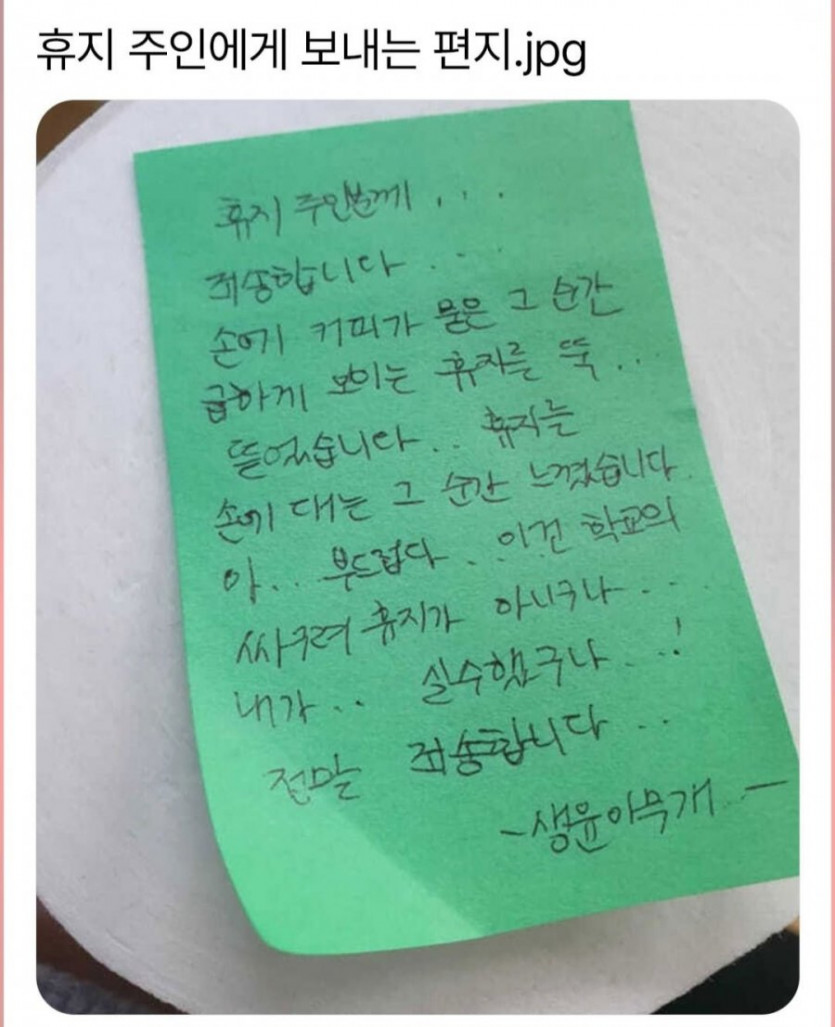 휴지 주인에게 보내는 편지.jpg
휴지 주인분께 . . .
죄송합니다 . . .
손에 커피가 묻은 그 순간
급하게 보이는 휴지를 뚝 . . .
뜯었습니다 . . 휴지를
손에 대는 그 순간 느꼈습니다
아 . . 부드럽다 . 이건 학교의
싸구려 휴지가 아니구나 . . .
내가 . . 실수했구나 . . !
정말 죄송합니다 . . .
-생윤아무개 -